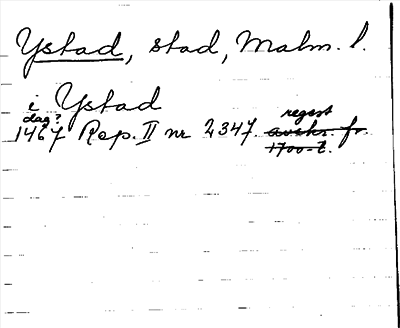 Ystad, stad, Malm. l.
i Ystad
dag? regest
1467 Rep. II nr 2347. avskr. fr.
1700-t.